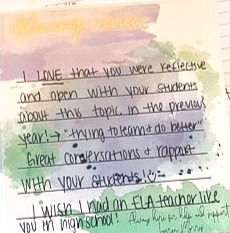 I LOVE that you were reflective
and open with your students
about this topic in the previous
year! → "trying to learn & do better"
Great conversations & rapport
with your students! :)
I wish I had an ELA teacher like
you in high school! Always here for help and support